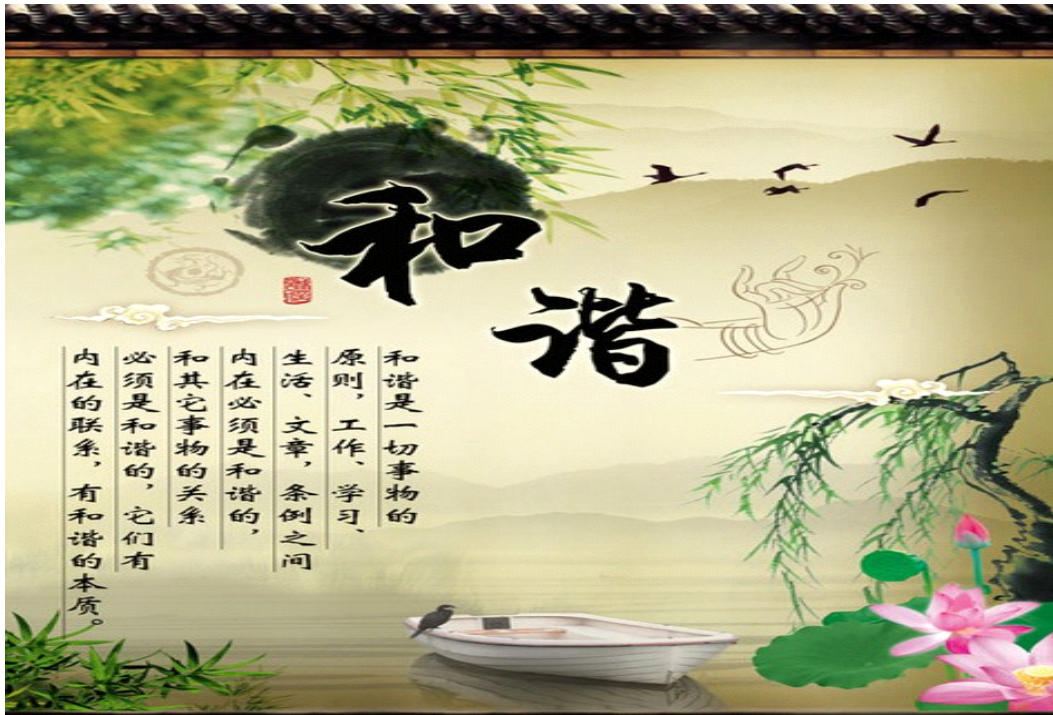 和谐
和谐是一切事物的
原则，工作、学习、
生活、文章，条例之间
内在必须是和谐的，
和其它事物的关系
必须是和谐的，它们有
内在的联系，有和谐的本质。